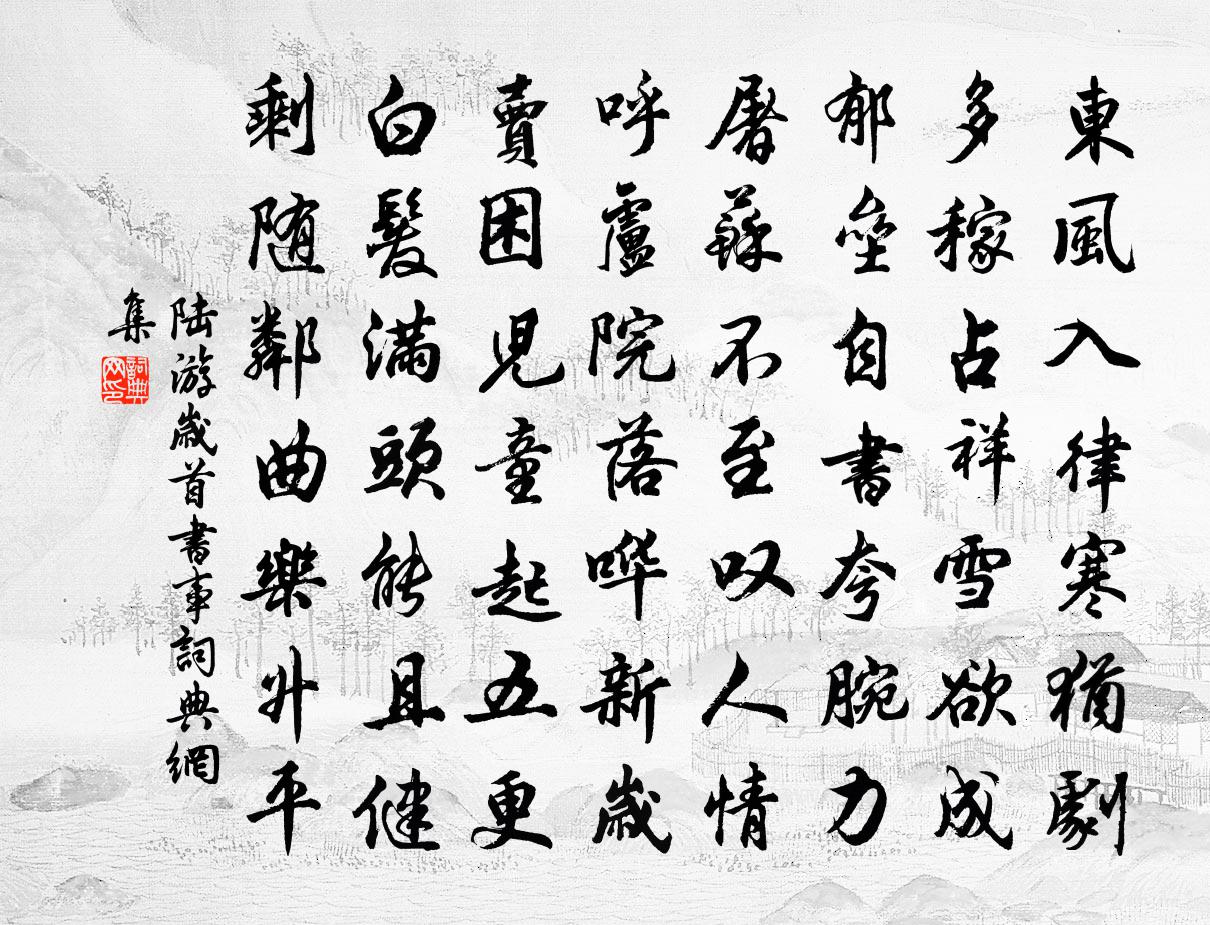 東風入律寒猶劇
多稼占祥雪欲成
郁壘自書夸腕力
屠蘇不至叹人情
呼盧院落哗新歲
賣困兒童起五更
白髮满頭能且健
剩随鄰曲樂升平
陆游歲首書事詞典網
集
詞典网印